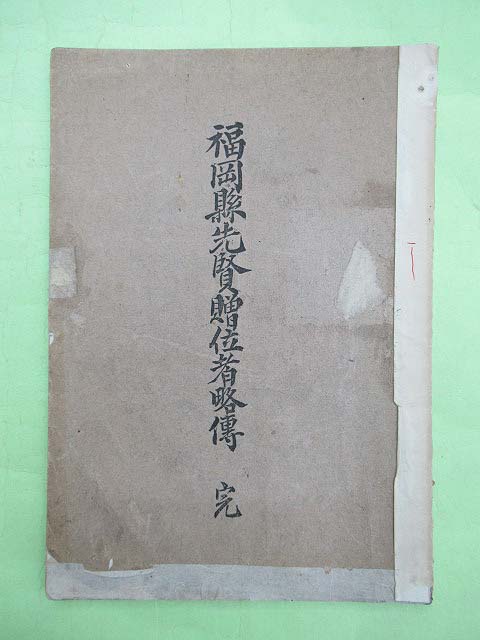 福岡縣先賢贈位者略傳 完